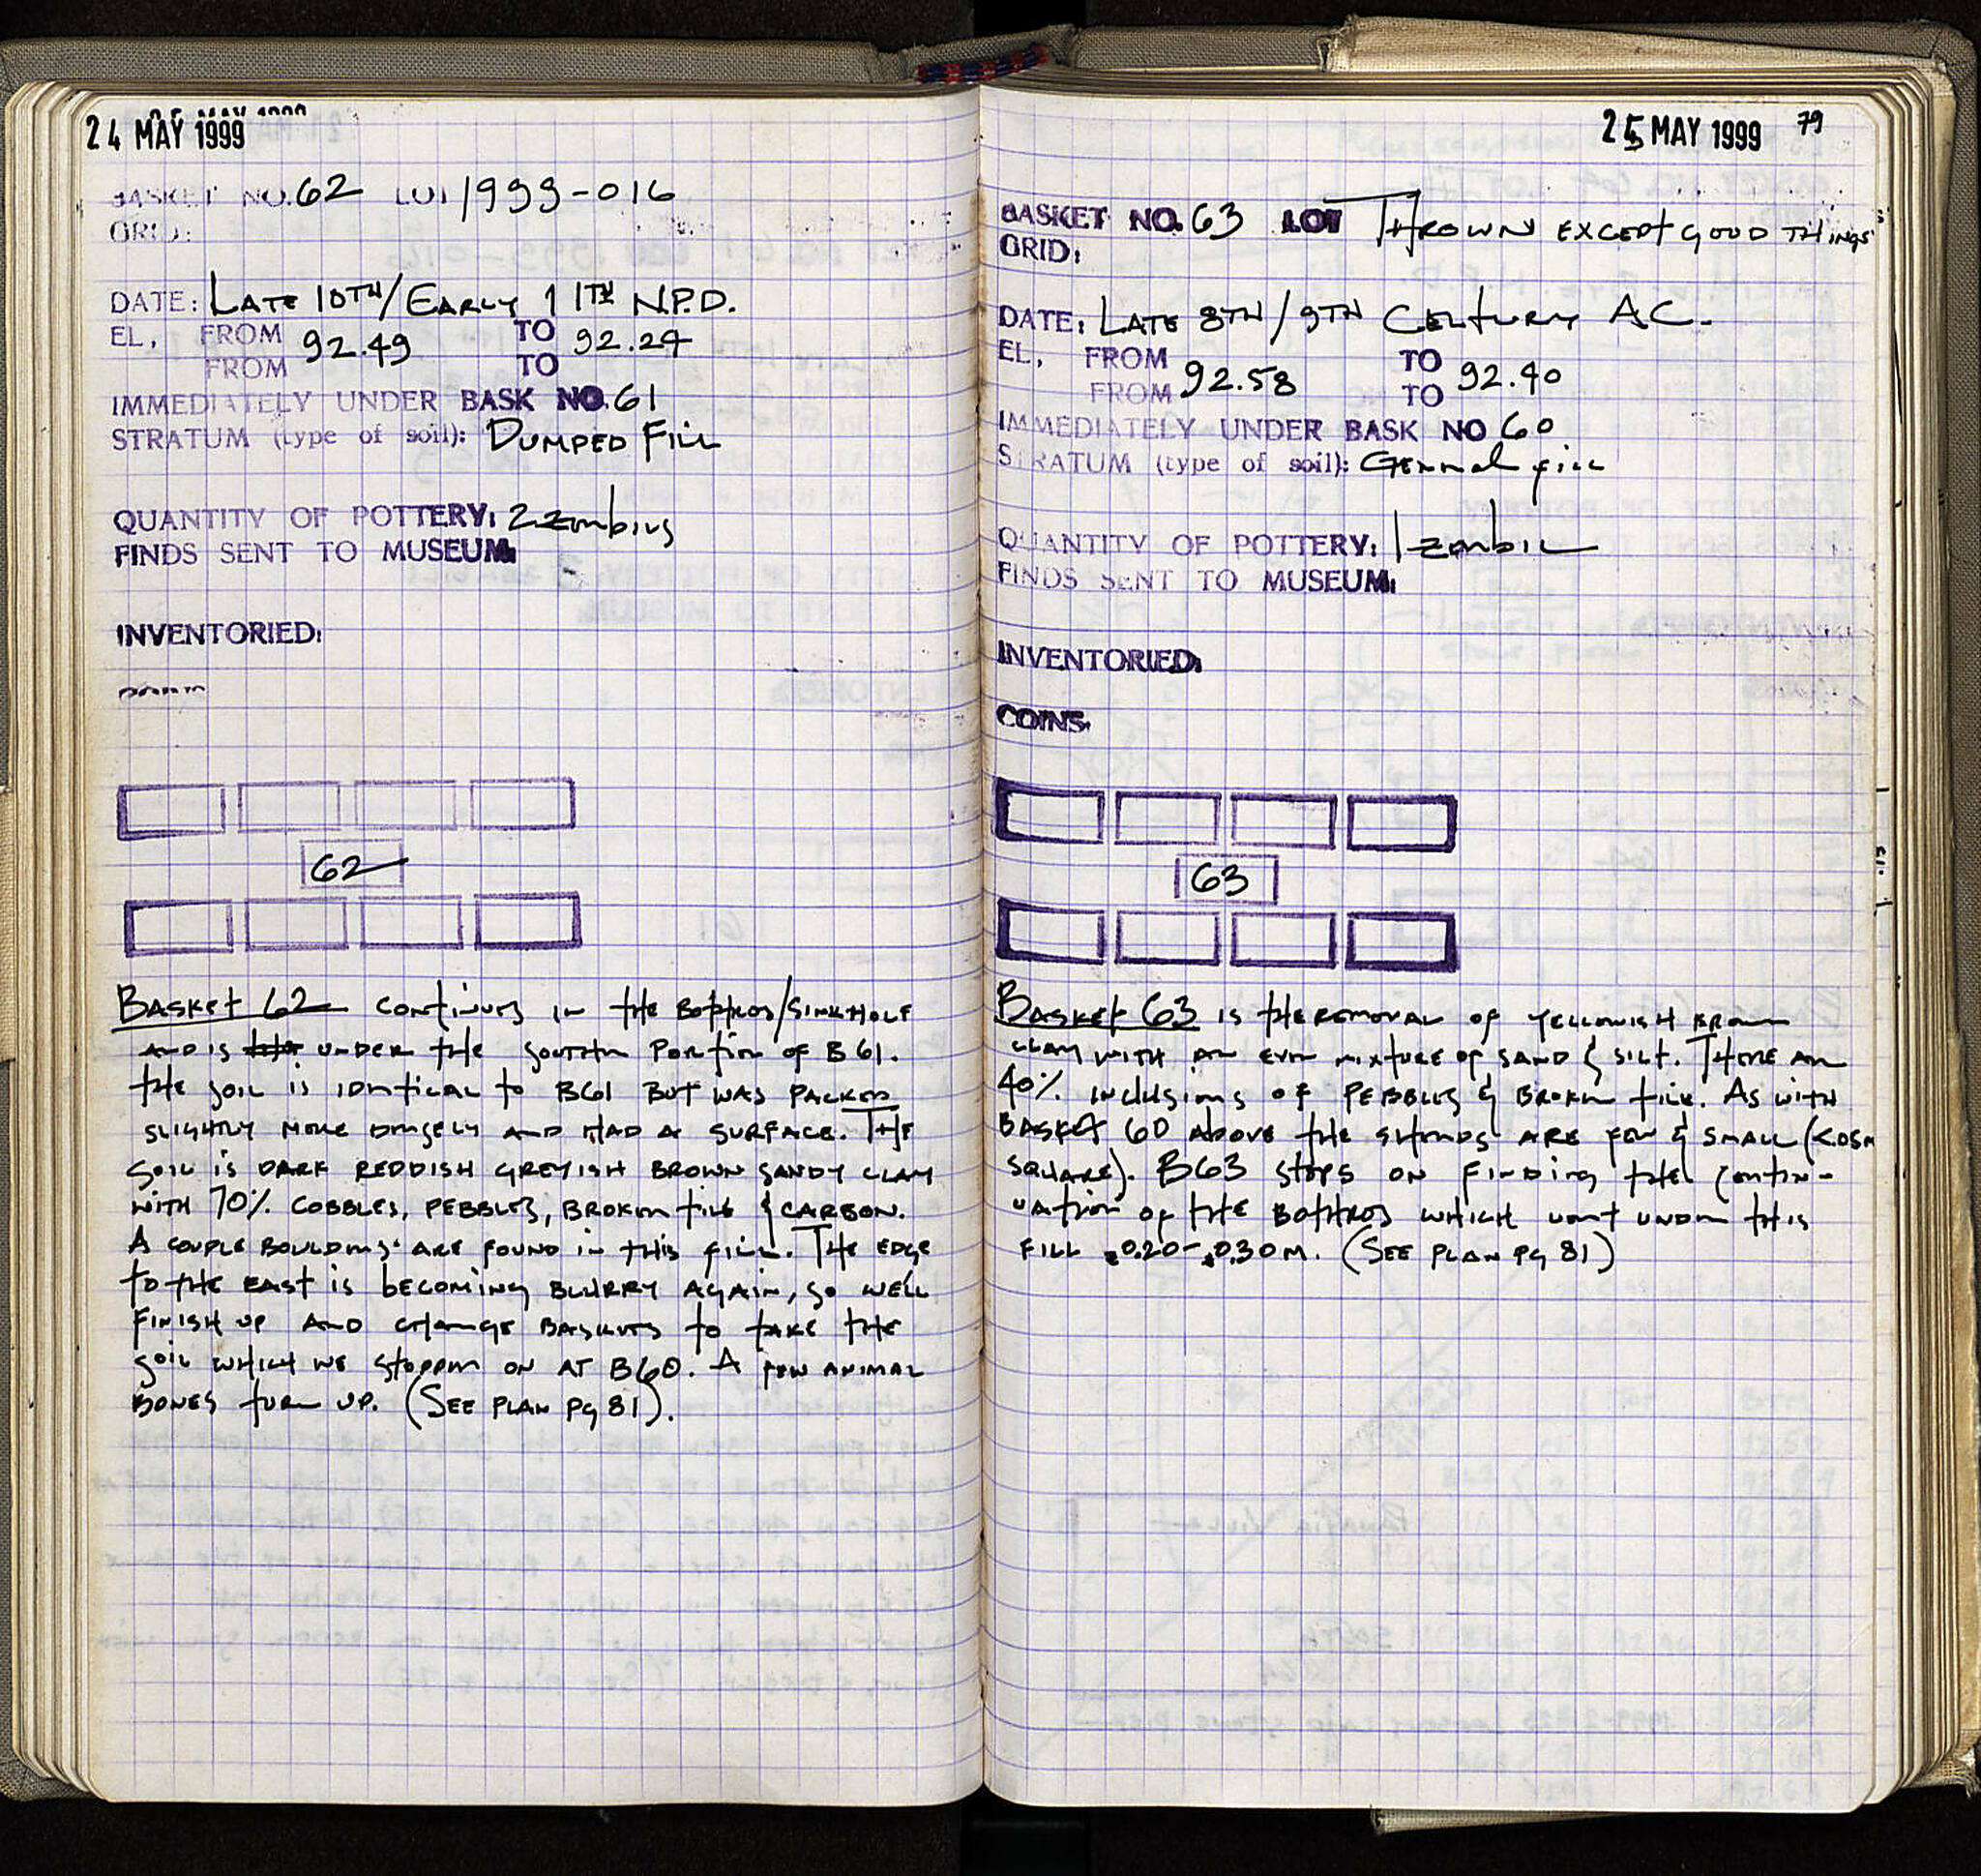 24 MAY 1999
BASKET NO. 62 LOT 1999-016
GRID:
DATE: LATE 10TH/EARLY 11TH N.P.D.
EL, FROM 92.49 TO 92.24
FROM TO
IMMEDIATELY UNDER BASK NO. 61
STRATUM (type of soil): DUMPED FILL
QUANTITY OF POTTERY: 2 zembils
FINDS SENT TO MUSEUM:
INVENTORIED:
62
BASKET 62 CONTINUES IN THE BOTHROS/SINKHOLE
AND IS UNDER THE SOUTHN PORTION OF B61.
THE SOIL IS IDENTICAL TO B61 BUT WAS PACKED
SLIGHTLY MORE DENSELY AND HAD A SURFACE. THE
SOIL IS DARK REDDISH GREYISH BROWN SANDY CLAY
WITH 70% COBBLES, PEBBLES, BROKEN TILE & CARBON.
A COUPLE BOULDERS ARE FOUND IN THIS FILL. THE EDGE
TO THE EAST IS BECOMING BLURRY AGAIN, SO WE'LL
FINISH UP AND CHANGE BASKETS TO TAKE THE
SOIL WHICH WE STOPPED ON AT B60. A FEW ANIMAL
BONES TURN UP. (SEE PLAN PG 81).
25 MAY 1999 79
BASKET NO. 63 LOT THROWN EXCEPT GOOD THINGS
GRID:
DATE: LATE 8TH/9TH CENTURY AC.
EL, FROM 92.58 TO 92.40
FROM TO
IMMEDIATELY UNDER BASK NO 60
STRATUM (type of soil): General fill
QUANTITY OF POTTERY: 1 zembil
FINDS SENT TO MUSEUM:
INVENTORIED:
COINS:
63
BASKET 63 IS THE REMOVAL OF YELLOWISH BROWN
CLAY WITH AN EVEN MIXTURE OF SAND & SILT. THERE ARE
40% INCLUSIONS OF PEBBLES & BROKEN TILE. AS WITH
BASKET 60 ABOVE THE SHERDS ARE FEW & SMALL (<.05M
SQUARE). B63 STOPS ON FINDING THE CONTIN-
UATION OF THE BOTHROS WHICH WENT UNDER THIS
FILL 0.20-0.30M. (SEE PLAN PG 81)